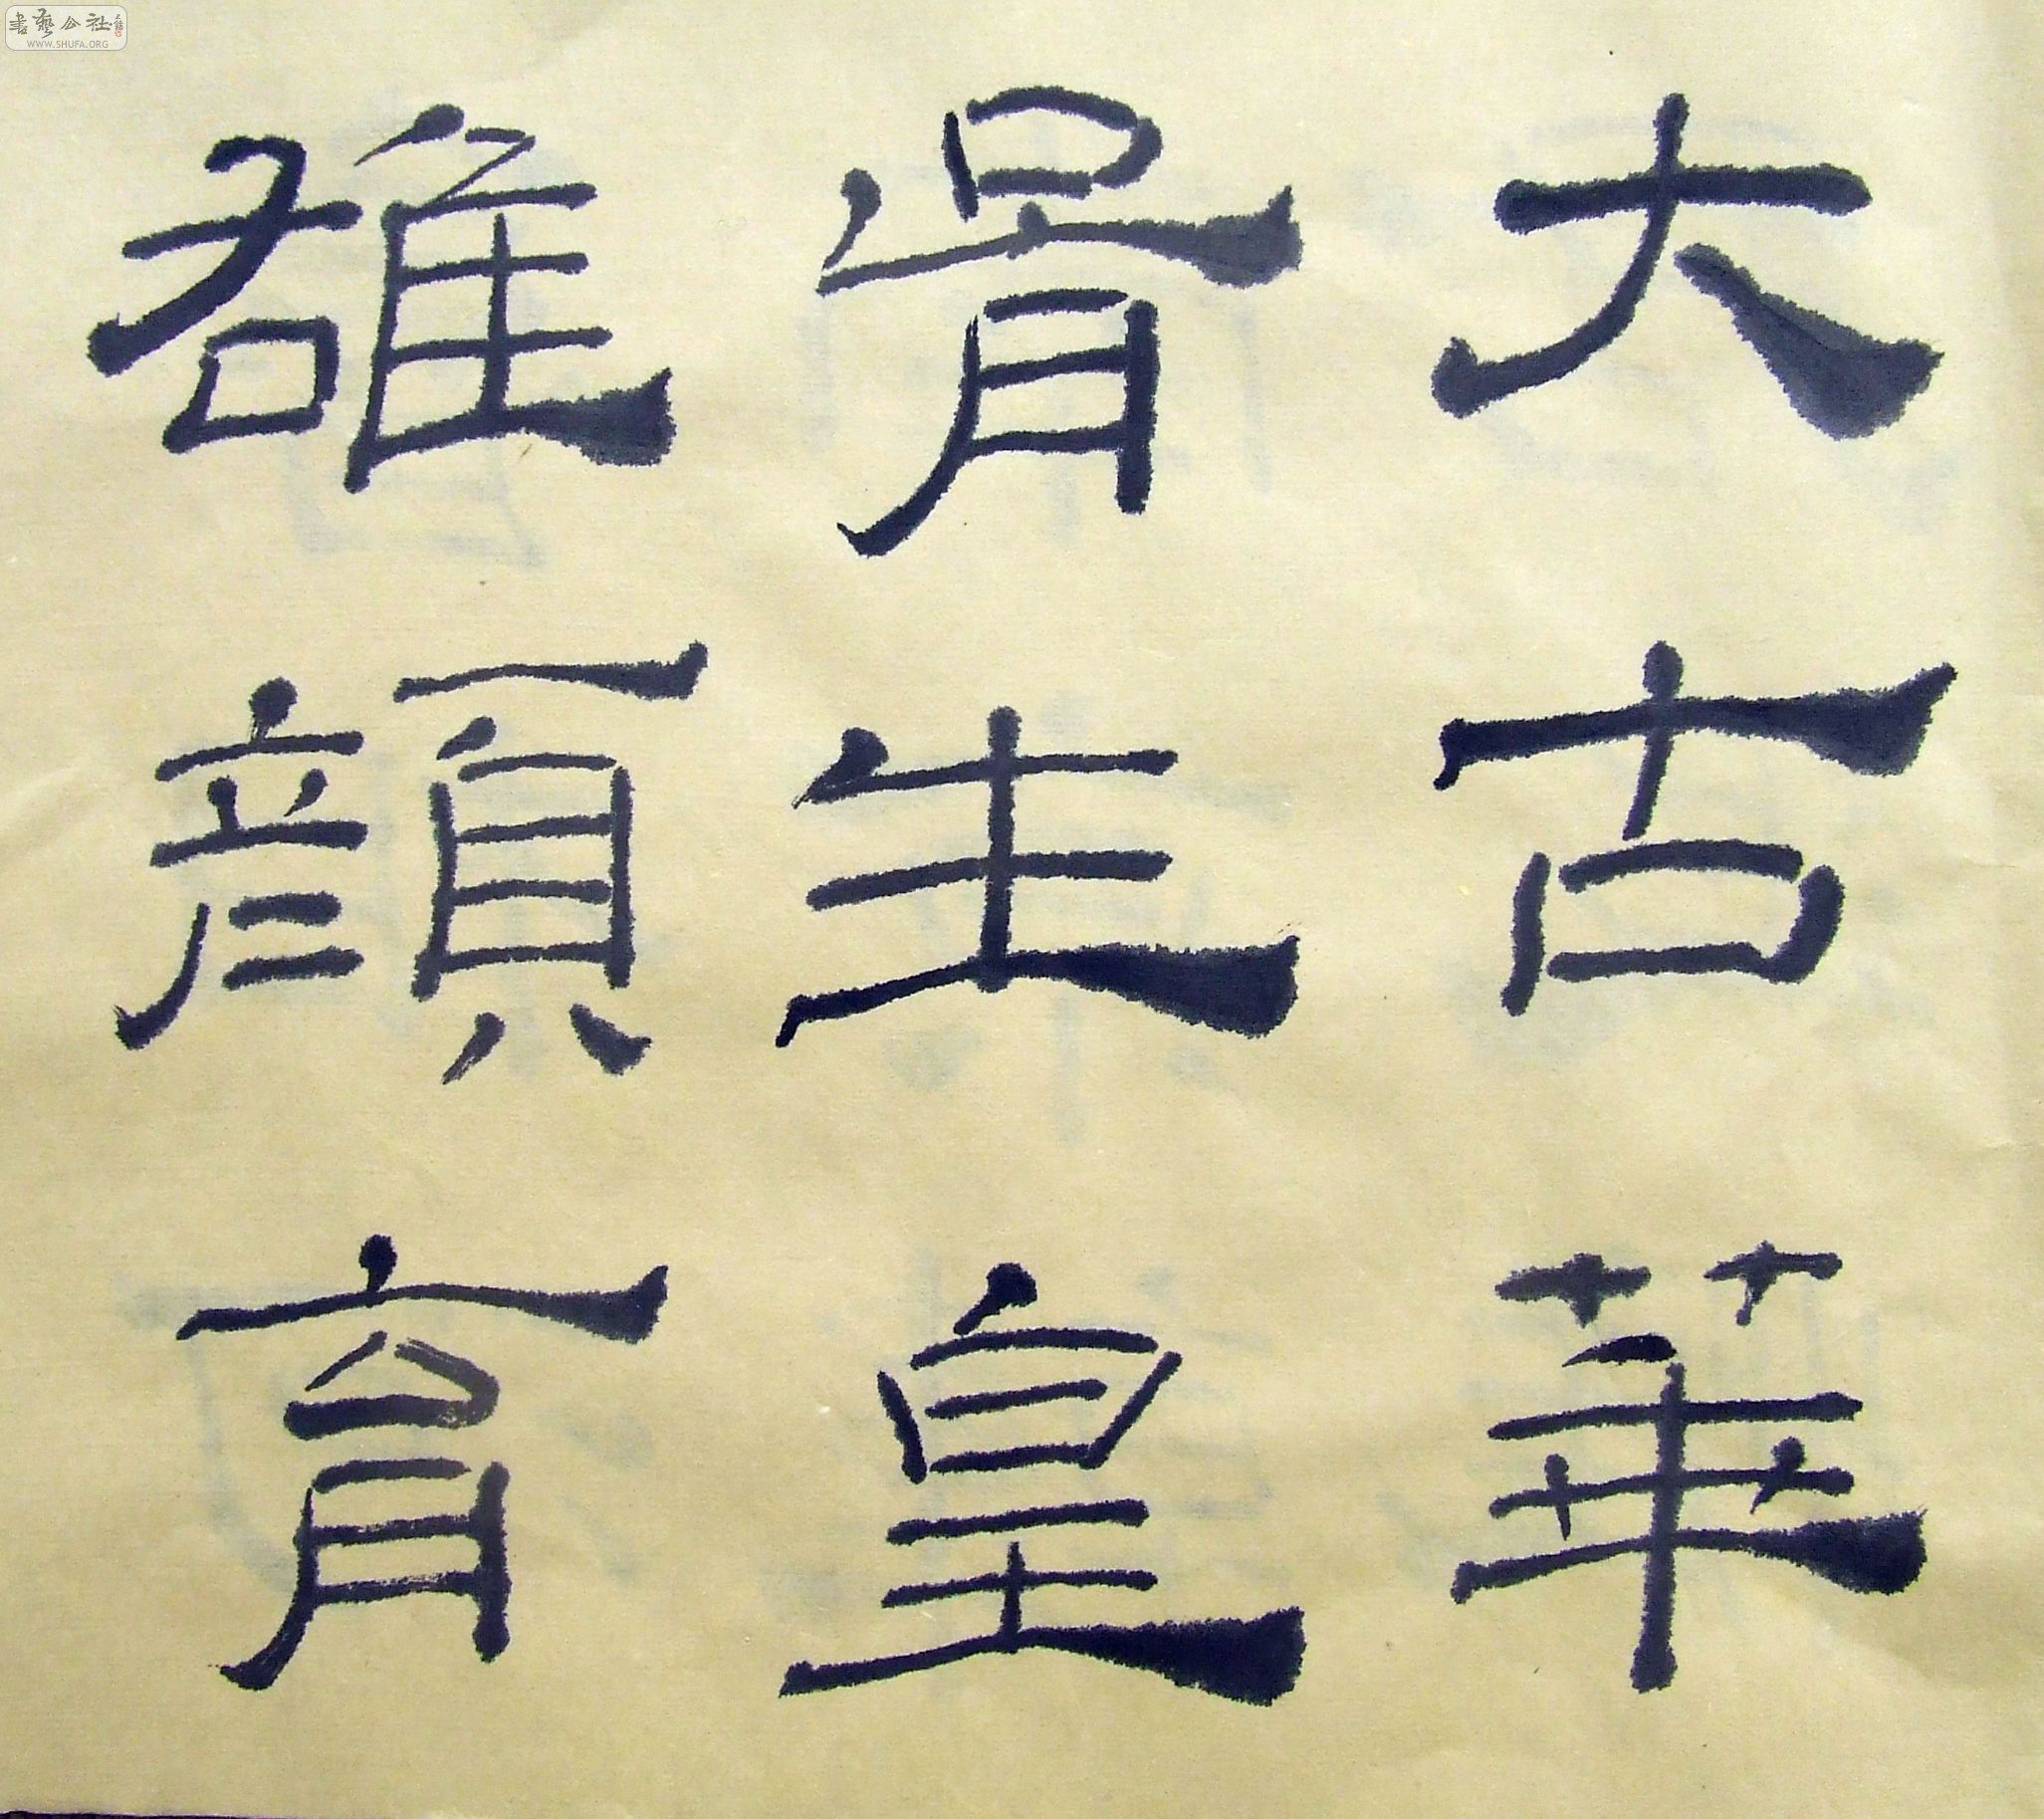 書藝公社
WWW.SHUFA.ORG
大古華
胥生皇
雄顏育